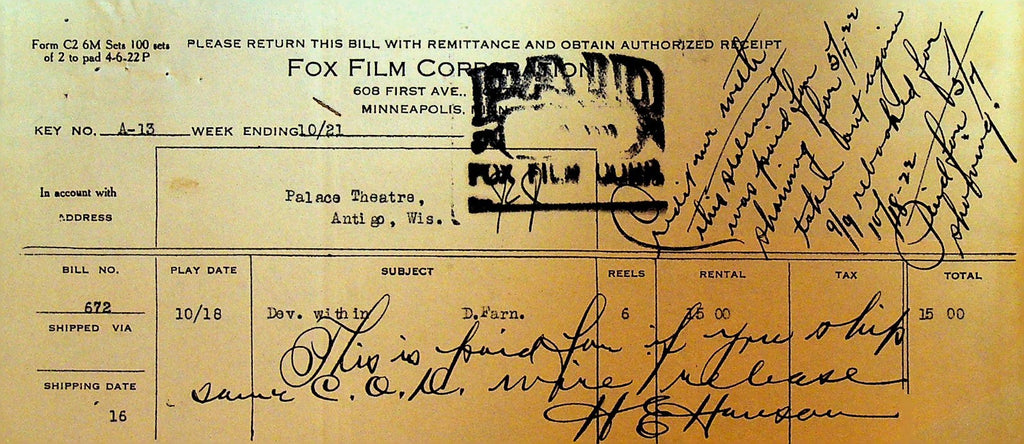 Form C2 6M Sets 100 sets
of 2 to pad 4-6-22 P
PLEASE RETURN THIS BILL WITH REMITTANCE AND OBTAIN AUTHORIZED RECEIPT
FOX FILM CORPORATION
608 FIRST AVE.,
MINNEAPOLIS, MINN.
KEY NO. A-13 WEEK ENDING 10/21
PAID
FOX FILM CORP.
In account with
ADDRESS
Palace Theatre,
Antigo, Wis.
Credit me with
this statement
was paid for
showing for 5/7/22
taken but again
9/9 rebooked for
10/18-22
Paid for 5/7
showing.
BILL NO. PLAY DATE SUBJECT REELS RENTAL TAX TOTAL
672
10/18 Dev. within D.Farn. 6 15 00 15 00
SHIPPED VIA
SHIPPING DATE
16
This is paid for if you ship
same C.O.D. wire release
H E Hanson